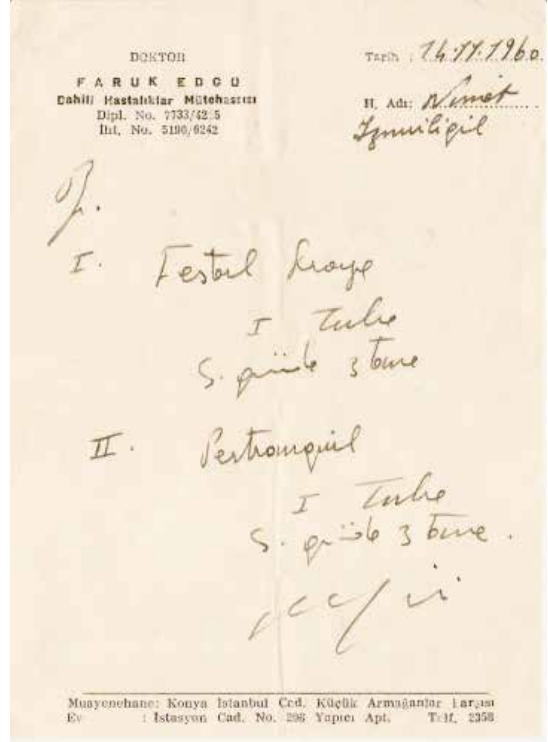 DOKTOR
FARUK EDGU
Dahili Hastalıklar Mütehassısı
Dipl. No. 7733/42 5
İht. No. 5190/6242
Tarih : 14.11.1960
H. Adı: Nimet
I. Festal Draje
I Tube
S. günde 3 tane
II. Pertranquil
I Tube
S. günde 3 tane.
Muayenehane: Konya İstanbul Cad. Küçük Armağanlar Karşısı
Ev : İstasyon Cad. No. 296 Yapıcı Apt. Telf. 2358